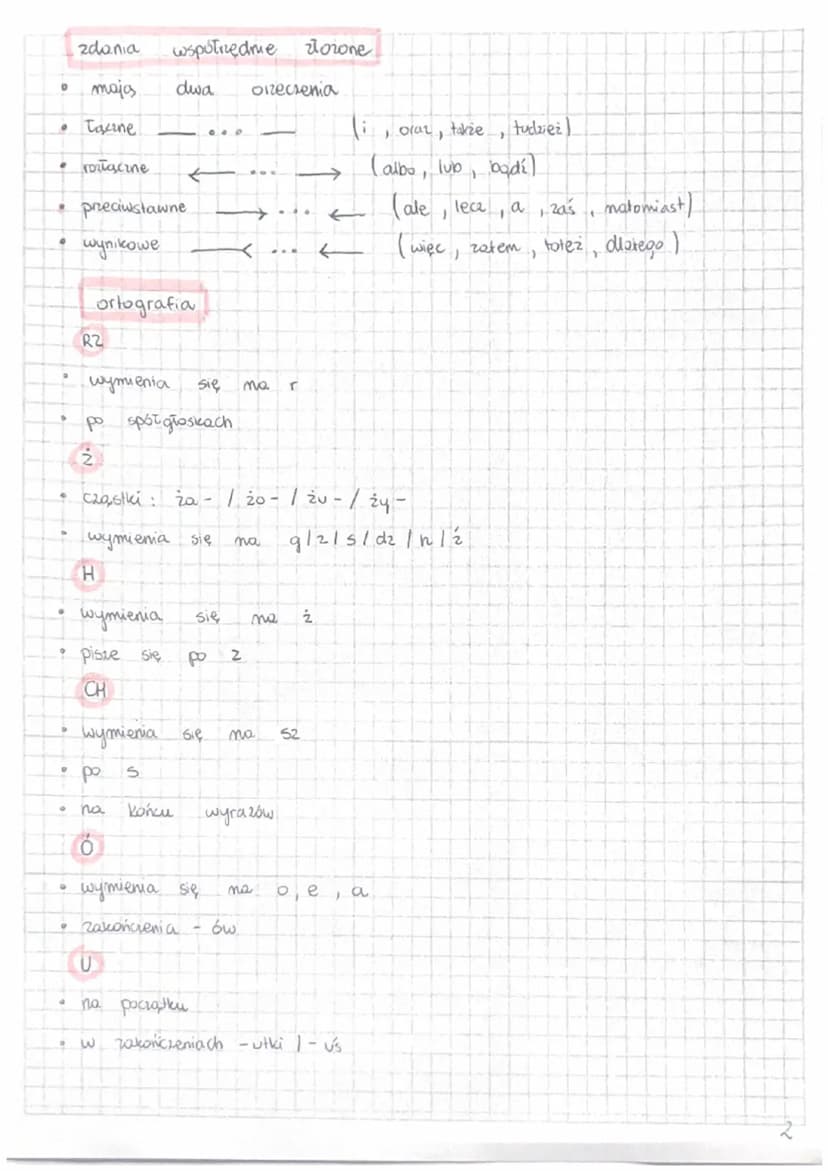 zdania współrzędnie złożone
• mają dwa orzeczenia
• łączne — ... — (i, oraz, także, tudzież)
• rozłączne ← ... → (albo, lub, bądź)
• przeciwstawne → ... ← (ale, lecz, a, zaś, natomiast)
• wynikowe —< ... ← (więc, zatem, toteż, dlatego)
ortografia
RZ
• wymienia się na r
• po spółgłoskach
Ż
• cząstki: ża- / żo- / żu- / ży-
• wymienia się na g/z/s/dz/h/ź
H
• wymienia się na ż
• pisze się po z
CH
• wymienia się na sz
• po s
• na końcu wyrazów
Ó
• wymienia się na o, e, a
• zakończenia - ów
U
• na początku
• w zakończeniach -utki / - uś
2